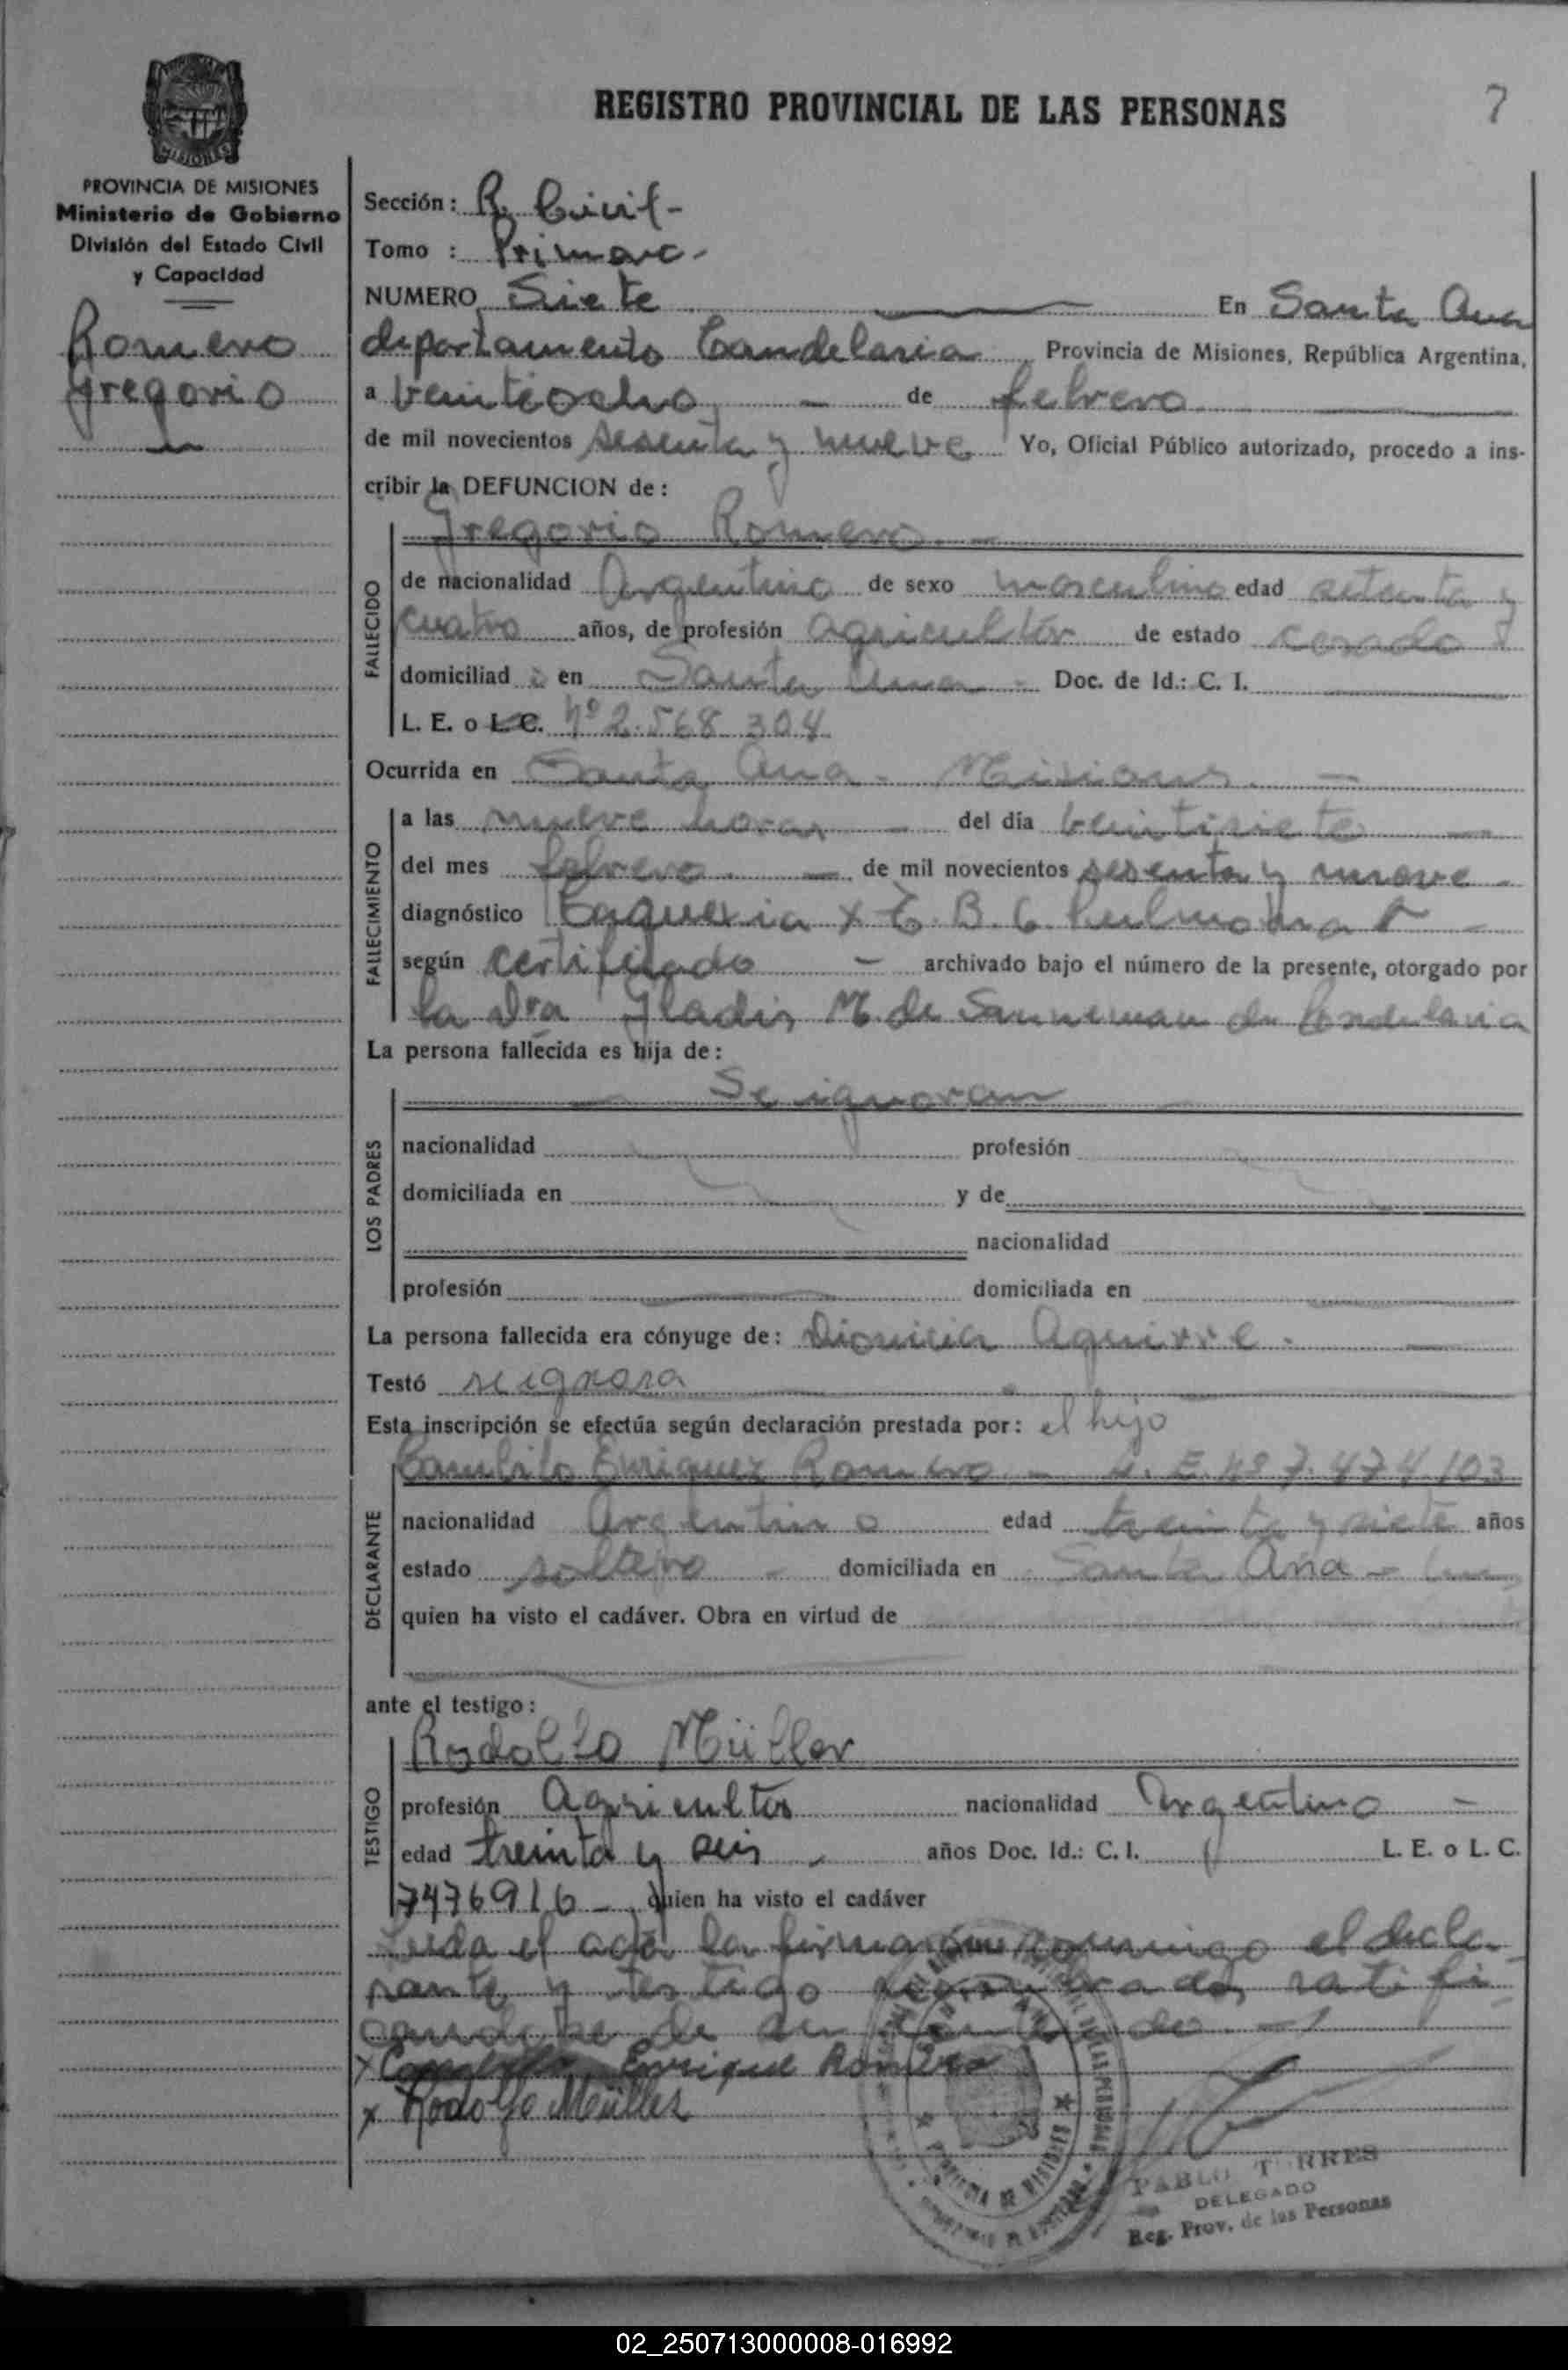 REGISTRO PROVINCIAL DE LAS PERSONAS
7
MISIONES
PROVINCIA DE MISIONES
Ministerio de Gobierno
División del Estado Civil
y Capacidad
Romero
Gregorio
Sección: R. Civil-
Tomo : Primero-
NUMERO Siete En Santa Ana
departamento Candelaria Provincia de Misiones, República Argentina,
a veintiocho - de febrero
de mil novecientos sesenta y nueve Yo, Oficial Público autorizado, procedo a ins-
cribir la DEFUNCION de:
Gregorio Romero -
FALLECIDO
de nacionalidad Argentino de sexo masculino edad setenta y
cuatro años, de profesión agricultor de estado casado
domiciliad o en Santa Ana - Doc. de Id.: C. I.
L. E. o L.C. Nº 2.568.304
Ocurrida en Santa Ana - Misiones. -
FALLECIMIENTO
a las nueve horas - del día veintisiete -
del mes febrero - de mil novecientos sesenta y nueve -
diagnóstico Caquexia x T. B. C. Pulmonar -
según certificado - archivado bajo el número de la presente, otorgado por
la Dra Gladis M. de Sanneman de Candelaria
La persona fallecida es hija de:
Se ignoran
LOS PADRES
nacionalidad profesión
domiciliada en y de
nacionalidad
profesión domiciliada en
La persona fallecida era cónyuge de: Dionicia Aguirre -
Testó se ignora
Esta inscripción se efectúa según declaración prestada por: el hijo
Enriquez Romero - L. E. Nº 7.474.103
DECLARANTE
nacionalidad Argentino edad treinta y siete años
estado soltero - domiciliada en Santa Ana -
quien ha visto el cadáver. Obra en virtud de
ante el testigo:
Rodolfo Müller
TESTIGO
profesión Agricultor nacionalidad Argentino -
edad treinta y seis - años Doc. Id.: C. I. L. E. o L. C.
7476916 - quien ha visto el cadáver
Leida el acta la firman conmigo el decla
rante y testigo nombrados ratifi
candose de su contenido. -
x Enrique Romero
x Rodolfo Müller
PROVINCIA DE MISIONES
PABLO TORRES
DELEGADO
Reg. Prov. de las Personas
02_250713000008-016992